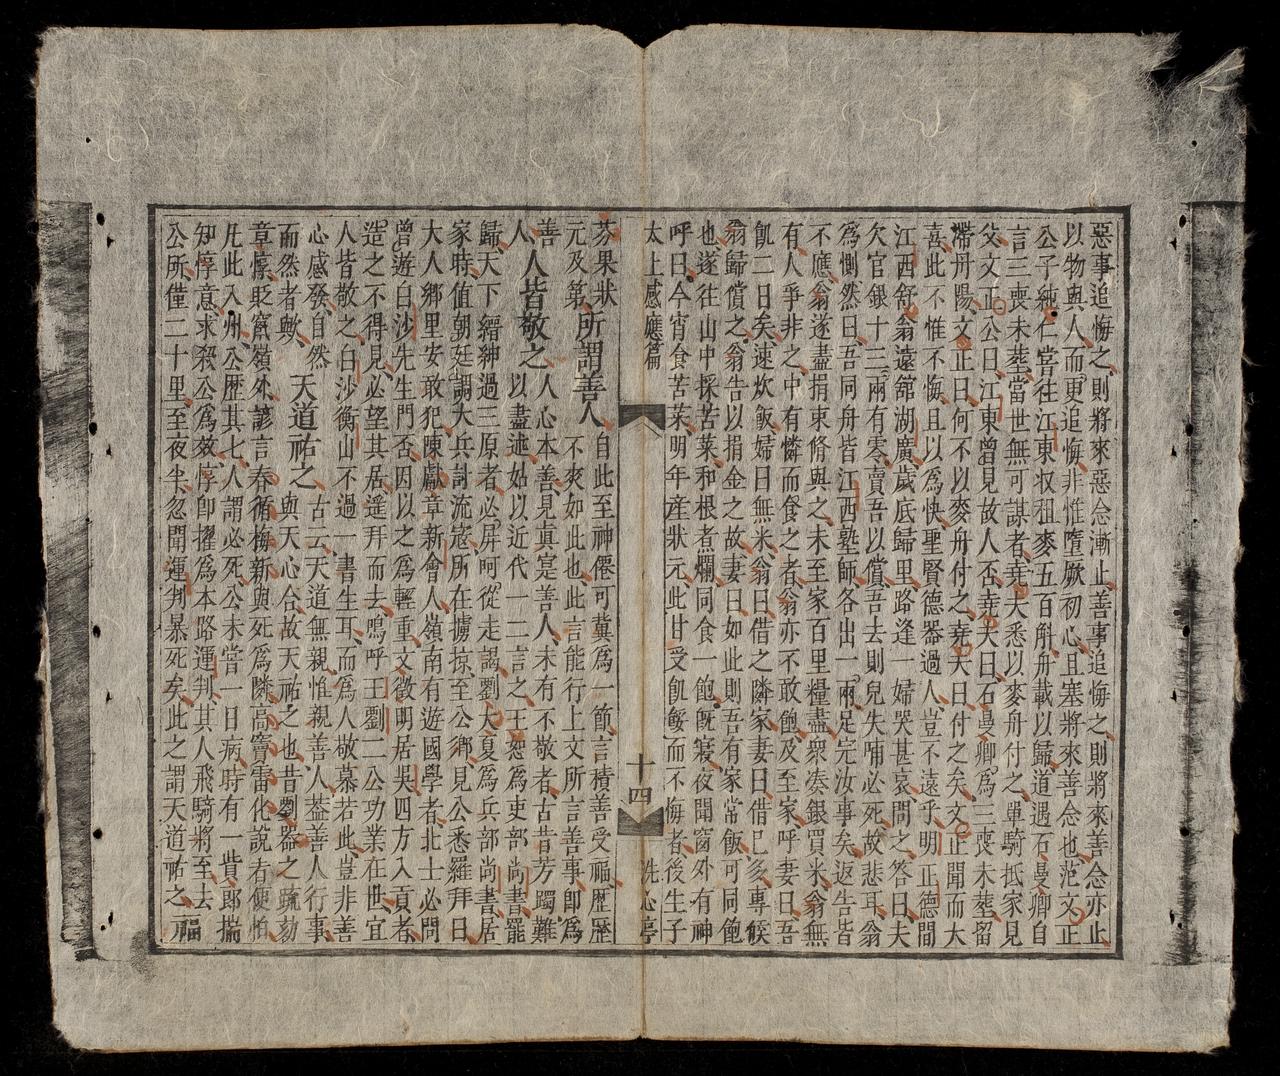 惡事追悔之則將來惡念漸止善事追悔之則將來善念亦止
以物與人而更追悔非惟墮厥初心且塞將來善念也范文正
公子純仁嘗往江東收租麥五百斛舟載以歸道遇石曼卿自
言三喪未塟當世無可謀者堯夫悉以麥舟付之單騎抵家見
父文正公曰江東曾見故人否堯夫曰石曼卿為三喪未塟留
滯丹陽文正曰何不以麥舟付之堯夫曰付之矣文正聞而大
喜此不惟不悔且以為快聖賢德器過人豈不遠乎明正德間
江西舒翁遠舘湖廣歲底歸里路逢一婦哭甚哀問之答曰夫
欠官銀十三兩有零賣吾以償吾去則兒失哺必死故悲耳翁
為惻然曰吾同舟皆江西塾師各出一兩足完汝事矣返告皆
不應翁遂盡捐束脩與之未至家百里糧盡衆凑銀買米翁無
有人爭非之中有憐而餐之者翁亦不敢飽及至家呼妻曰吾
飢二日矣速炊飯婦曰無米翁曰借之隣家妻曰借已多專候
翁歸償之翁告以捐金之故妻曰如此則吾有家常飯可同飽
也遂往山中採苦菜和根煮爛同食一飽旣寢夜聞窗外有神
呼曰今宵食苦菜明年產狀元此甘受飢餒而不悔者後生子
太上感應篇 十四 洗心亭
芬果狀
元及第 所謂善人 自此至神僊可冀為一節言積善受福歷歷
不爽如此也此言能行上文所言善事卽為
善人 人皆敬之 人心本善見真寔善人未有不敬者古昔芳躅難
以盡述姑以近代一二言之王恕為吏部尚書罷
歸天下縉紳過三原者必屏呵從走謁劉大夏為兵部尚書居
家時值朝廷謂大兵討流寇所在擄掠至公鄉見公悉羅拜曰
大人鄉里安敢犯陳獻章新會人嶺南有遊國學者北士必問
曾遊白沙先生門否因以之為輕重文徵明居吳四方入貢者
造之不得見必望其居遥拜而去嗚呼王劉二公功業在世宜
人皆敬之白沙衡山不過一書生耳而為人敬慕若此豈非善
心感發自然
而然者歟 天道祐之 古云天道無親惟親善人葢善人行事
與天心合故天祐之也昔劉器之疏劾
章惇貶竄嶺外諺言春循梅新與死為隣高竇雷化說者便怕
凡此入州公歷其七人謂必死公未嘗一日病時有一貲郎揣
知惇意求殺公為效惇卽擢為本路運判其人飛騎將至去
公所僅二十里至夜半忽聞運判暴死矣此之謂天道祐之福